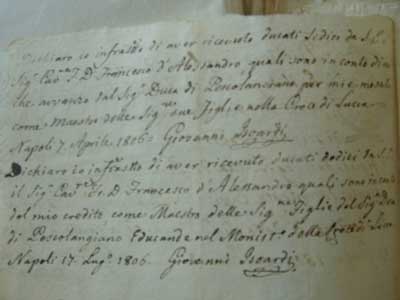 Dichiaro io infratto di aver ricevuto ducati Sedici da S.E.
Sig.r Cav.re F. D. Francesco d'Alessandro quali sono in conto di
che avanzo dal Sig.r Duca di Pescolanciano per mie mesate
come Maestro delle Sig.ne sue Figlie nella Croce di Lucca
Napoli 7 Aprile 1806 Giovanni Iscardi
Dichiaro io infratto di aver ricevuto ducati dodici da S.E.
il Sig.r Cav.re F. D. Francesco d'Alessandro quali sono in conto
del mio credito come Maestro delle Sig.ne Figlie del Sig.r Duca
di Pescolangiano Educande nel Monist.ro della Croce di Lucca
Napoli 17 Lug.o 1806. Giovanni Iscardi